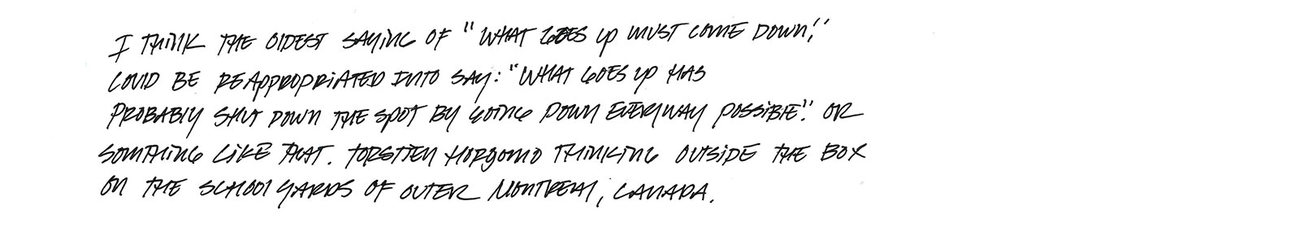 I THINK THE OLDEST SAYING OF "WHAT GOES UP MUST COME DOWN,"
COULD BE REAPPROPRIATED INTO SAY: "WHAT GOES UP HAS
PROBABLY SHUT DOWN THE SPOT BY GOING DOWN EVERYWAY POSSIBLE". OR
SOMTHING LIKE THAT. TORSTTEN HORGOMO THINKING OUTSIDE THE BOX
ON THE SCHOOLYARDS OF OUTER MONTREAL, CANADA.